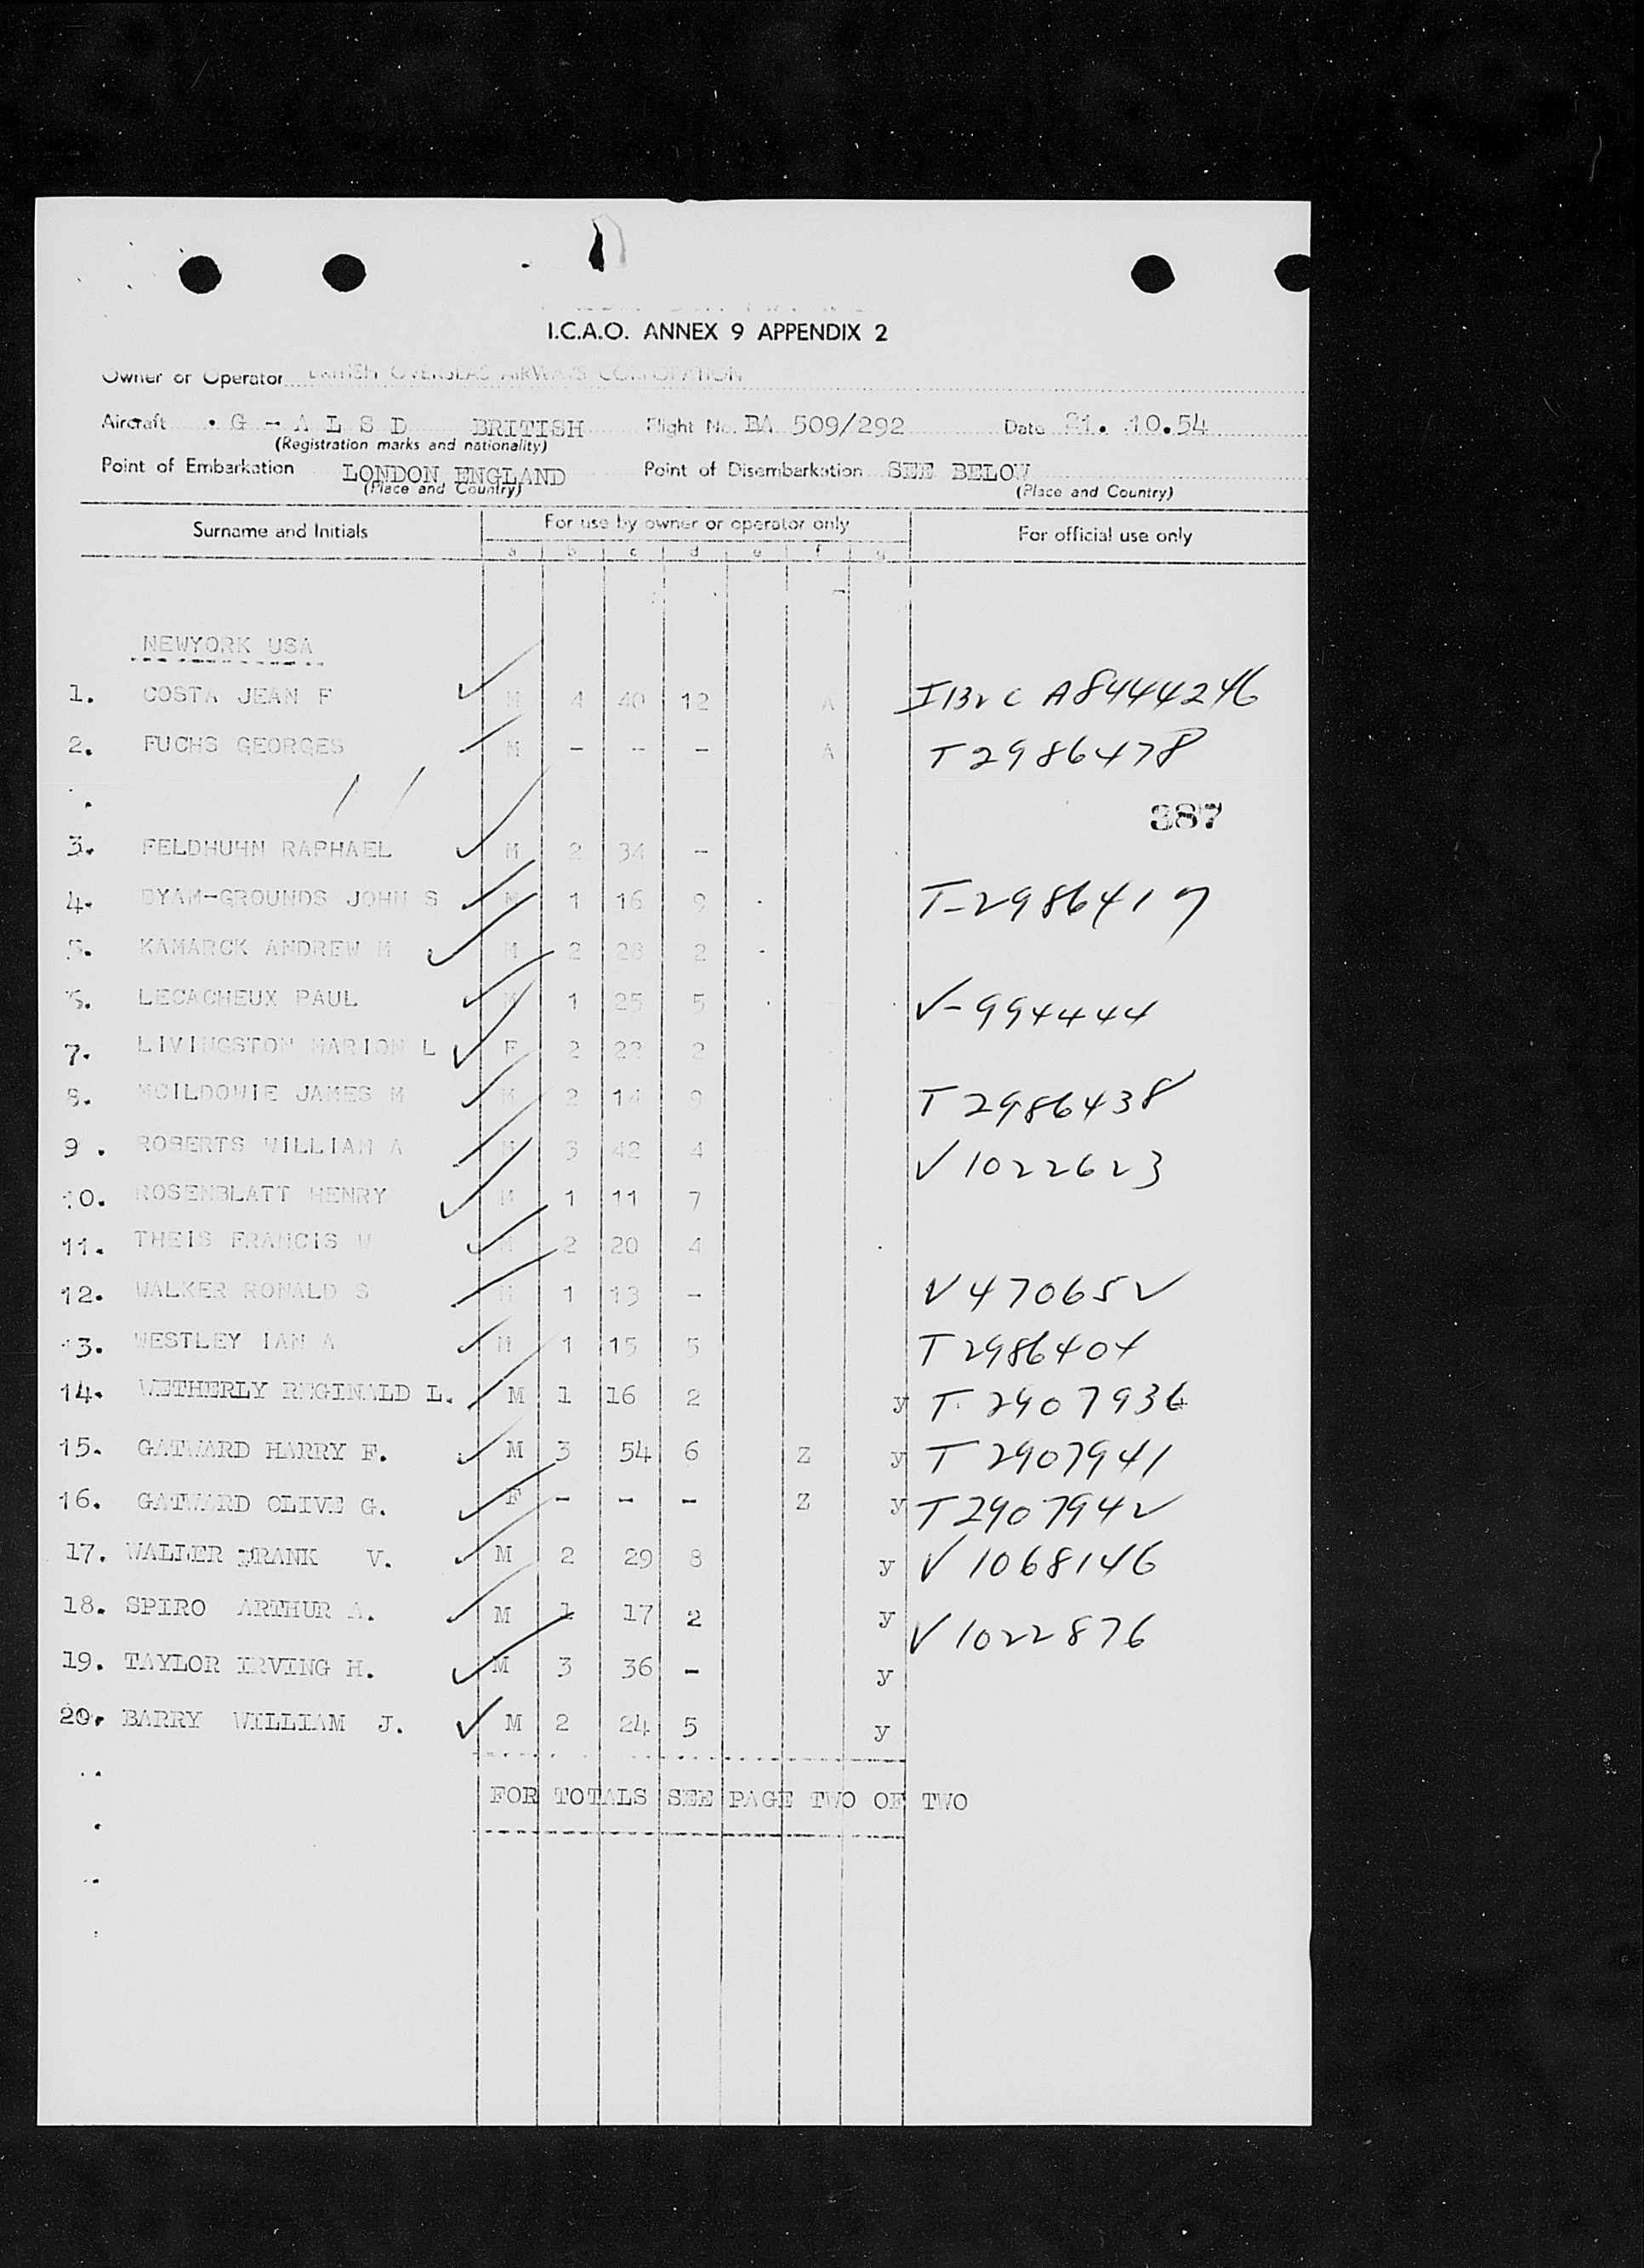 I.C.A.O. ANNEX 9 APPENDIX 2
Owner or Operator BRITISH OVERSEAS AIRWAYS CORPORATION
Aircraft G - A L S D BRITISH Flight No. BA 509/292 Date 21. 10.54
(Registration marks and nationality)
Point of Embarkation LONDON, ENGLAND Point of Disembarkation SEE BELOW
(Place and Country) (Place and Country)
Surname and Initials For use by owner or operator only For official use only
a b c d e f g
NEWYORK USA
1. COSTA JEAN F M 4 40 12 A A8444246
2. FUCHS GEORGES M - - - A T2986478
387
3. FELDHUHN RAPHAEL M 2 34 -
4. DYAM-GROUNDS JOHN S M 1 16 9 T-2986417
5. KAMARCK ANDREW M M 2 28 2
6. LECACHEUX PAUL M 1 25 5 V-994444
7. LIVINGSTON MARION L F 2 22 2
8. MCILDOWIE JAMES M M 2 14 9 T 2986438
9. ROBERTS WILLIAM A M 3 42 4 V 1022623
10. ROSENBLATT HENRY M 1 11 7
11. THEIS FRANCIS W M 2 20 4
12. WALKER RONALD S M 1 13 - V 470652
13. WESTLEY IAN A M 1 15 5 T 2986404
14. WETHERLY REGINALD L. M 1 16 2 y T 2907936
15. GATWARD HARRY F. M 3 54 6 Z y T 2907941
16. GATWARD OLIVE G. F - - - Z y T 2907942
17. WALLER FRANK V. M 2 29 8 y V 1068146
18. SPIRO ARTHUR A. M 1 17 2 y V 1022876
19. TAYLOR IRVING H. M 3 36 - y
20. BARRY WILLIAM J. M 2 24 5 y
FOR TOTALS SEE PAGE TWO OF TWO